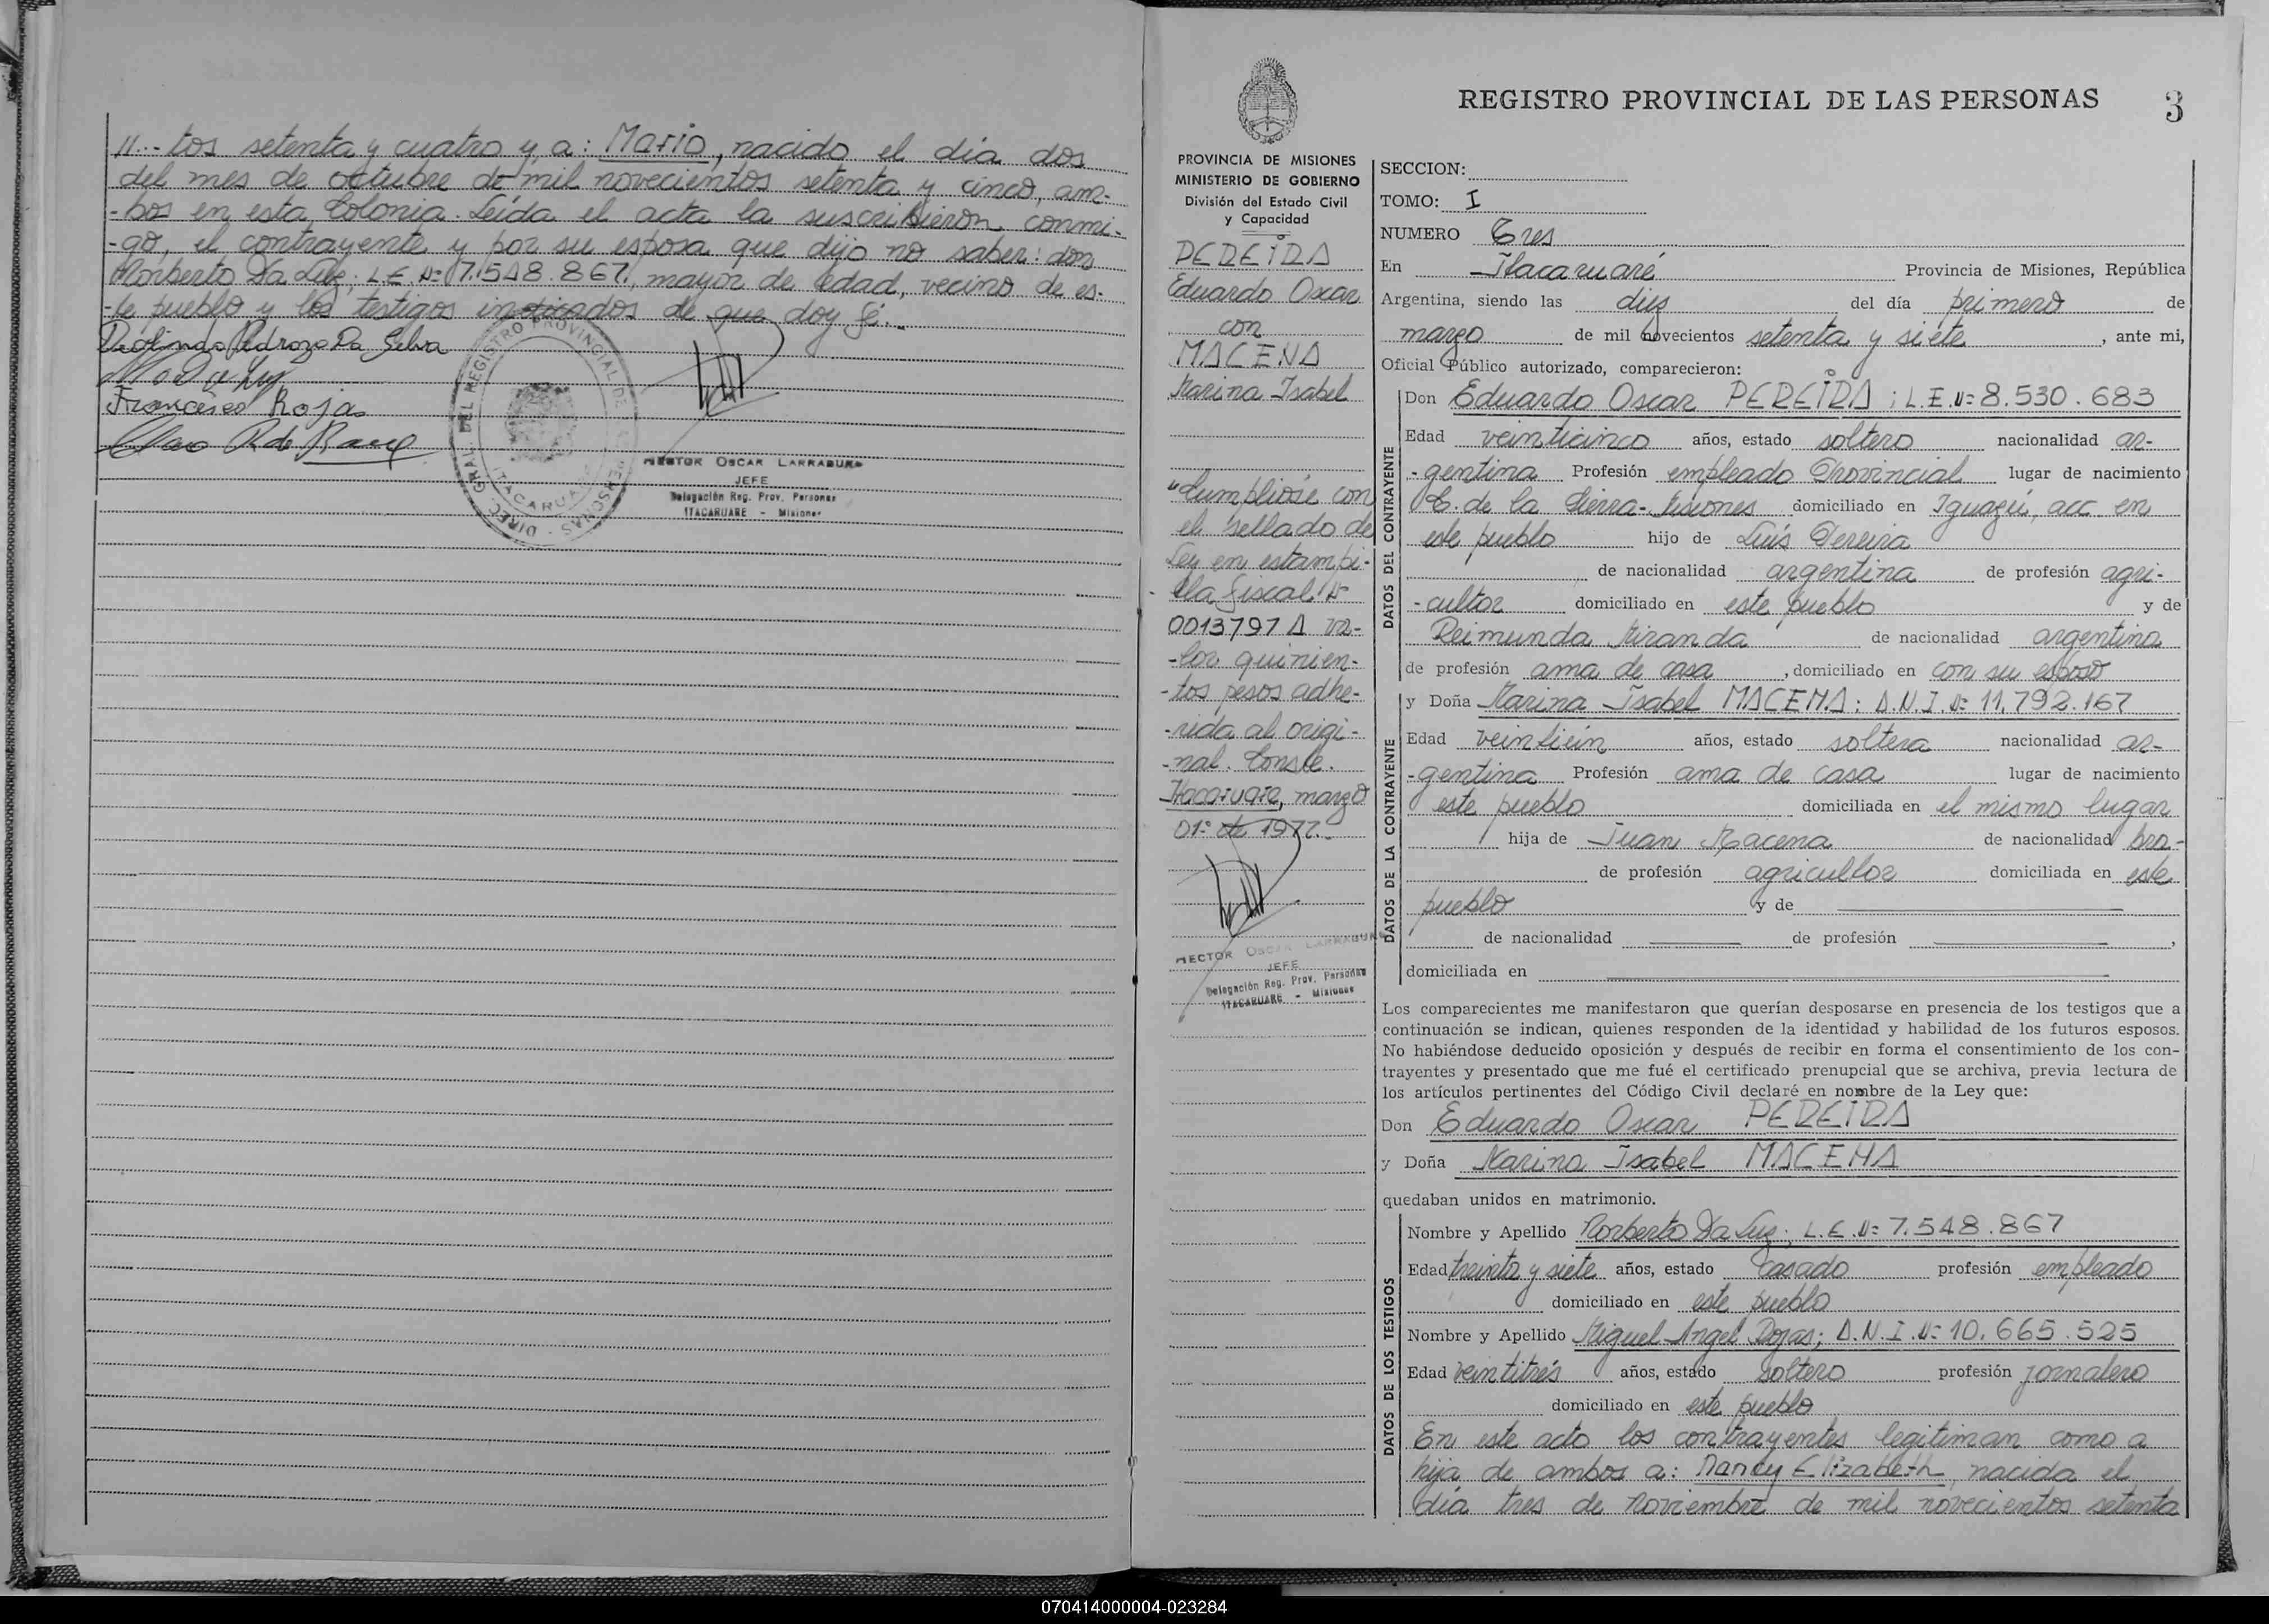 11.- tos setenta y cuatro y a: Mario, nacido el día dos
del mes de octubre de mil novecientos setenta y cinco, am-
-bos en esta Colonia. Leída el acta la suscribieron conmi-
-go, el contrayente y por su esposa que dijo no saber: don
Norberto Da Luz; L.E. Nº 7.548.867, mayor de edad, vecino de es-
-te pueblo y los testigos indicados de que doy fé.-
Pedroza Da Silva
Francisco Rojas
DIREC. GRAL. DEL REGISTRO PROVINCIAL DE LAS PERSONAS
ITACARUARE
HECTOR OSCAR LARRABURE
JEFE
Delegación Reg. Prov. Personas
ITACARUARE - Misiones
PROVINCIA DE MISIONES
MINISTERIO DE GOBIERNO
División del Estado Civil
y Capacidad
PEREIRA
Eduardo Oscar
con
MACENA
Marina Isabel
"Cumplióse con
el sellado de
Ley en estampi-
lla fiscal Nº
0013797 A va-
-lor quinien-
-tos pesos adhe-
-rida al origi-
-nal. Conste.
Itacaruaré, marzo
01º de 1977.-
HECTOR OSCAR LARRABURE
JEFE
Delegación Reg. Prov. Personas
ITACARUARE - Misiones
REGISTRO PROVINCIAL DE LAS PERSONAS
3
SECCION:
TOMO: I
NUMERO Tres
En Itacaruaré Provincia de Misiones, República
Argentina, siendo las diez del día primero de
marzo de mil novecientos setenta y siete, ante mi,
Oficial Público autorizado, comparecieron:
DATOS DEL CONTRAYENTE
Don Eduardo Oscar PEREIRA; L.E. Nº 8.530.683
Edad veinticinco años, estado soltero nacionalidad ar-
-gentina Profesión empleado Provincial lugar de nacimiento
C. de la Sierra-Misiones domiciliado en Iguazú, acc en
este pueblo hijo de Luís Pereira
de nacionalidad argentina de profesión agri-
-cultor domiciliado en este pueblo y de
Reimunda Miranda de nacionalidad argentina
de profesión ama de casa, domiciliado en con su esposo
DATOS DE LA CONTRAYENTE
y Doña Marina Isabel MACENA; D.N.I. Nº 11.792.167
Edad veintiún años, estado soltera nacionalidad ar-
-gentina Profesión ama de casa lugar de nacimiento
este pueblo domiciliada en el mismo lugar
hija de Juan Macena de nacionalidad bra-
de profesión agricultor domiciliada en este
pueblo y de
de nacionalidad de profesión ,
domiciliada en
Los comparecientes me manifestaron que querían desposarse en presencia de los testigos que a
continuación se indican, quienes responden de la identidad y habilidad de los futuros esposos.
No habiéndose deducido oposición y después de recibir en forma el consentimiento de los con-
trayentes y presentado que me fué el certificado prenupcial que se archiva, previa lectura de
los artículos pertinentes del Código Civil declaré en nombre de la Ley que:
Don Eduardo Oscar PEREIRA
y Doña Marina Isabel MACENA
quedaban unidos en matrimonio.
DATOS DE LOS TESTIGOS
Nombre y Apellido Norberto Da Luz; L.E. Nº 7.548.867
Edad treinta y siete años, estado casado profesión empleado
domiciliado en este pueblo
Nombre y Apellido Miguel Angel Rojas; D.N.I. Nº 10.665.525
Edad veintitrés años, estado soltero profesión jornalero
domiciliado en este pueblo
En este acto los contrayentes legitiman como a
hija de ambos a: Nancy Elizabeth, nacida el
día tres de Noviembre de mil novecientos setenta
070414000004-023284